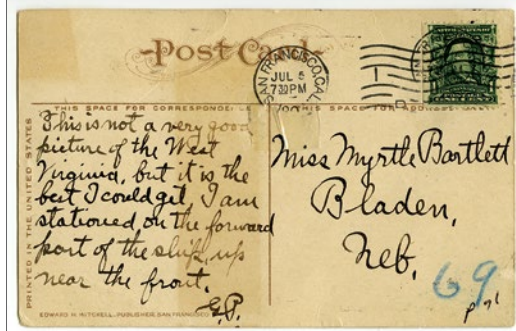 Post Card
SAN FRANCISCO, CAL.
JUL 5
7 30 PM
1
THIS SPACE FOR CORRESPONDENCE
THIS SPACE FOR ADDRESS ONLY
PRINTED IN THE UNITED STATES
This is not a very good
picture of the West
Virginia, but it is the
best I could get. I am
stationed on the forward
part of the ship, up
near the front.
G.P.
Miss Myrtle Bartlett
Bladen,
Neb.
69
EDWARD H. MITCHELL, PUBLISHER, SAN FRANCISCO